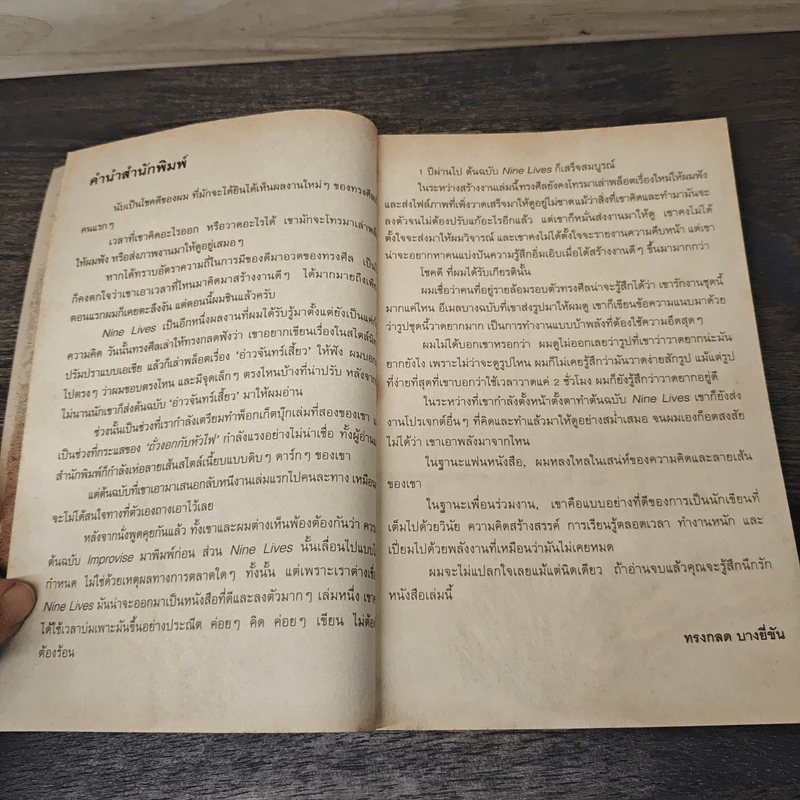 คำนำสำนักพิมพ์
นับเป็นโชคดีของผม ที่มักจะได้ยินได้เห็นผลงานใหม่ๆ ของทรงศีล
คนแรกๆ
เวลาที่เขาคิดอะไรออก หรือวาดอะไรได้ เขามักจะโทรมาเล่า
ให้ผมฟัง หรือส่งภาพงานมาให้ดูอยู่เสมอๆ
หากได้ทราบอัตราความถี่ในการมีของดีมาอวดของทรงศีล เป็น
ก็คงตกใจว่าเขาเอาเวลาที่ไหนมาคิดมาสร้างงานดีๆ ได้มากมายถึง
ตอนแรกผมก็เคยตะลึงงัน แต่ตอนนี้ผมชินแล้วครับ
Nine Lives เป็นอีกหนึ่งผลงานที่ผมได้รับรู้มาตั้งแต่ยังเป็น
ความคิด วันนั้นทรงศีลเล่าให้ทรงกลดฟังว่า เขาอยากเขียนเรื่องในสไตล์
ปรัมปราแบบเอเชีย แล้วก็เล่าพล็อตเรื่อง 'อ่าวจันทร์เสี้ยว' ให้ฟัง ผมบอก
ไปตรงๆ ว่าผมชอบตรงไหน และมีจุดเล็กๆ ตรงไหนบ้างที่น่าปรับ หลังจาก
ไม่นานนักเขาก็ส่งต้นฉบับ 'อ่าวจันทร์เสี้ยว' มาให้ผมอ่าน
ช่วงนั้นเป็นช่วงที่เขากำลังเตรียมทำพ็อกเก็ตบุ๊กเล่มที่สองของเขา
เป็นช่วงที่กระแสของ 'ถั่วงอกกับหัวไฟ' กำลังแรงอย่างไม่น่าเชื่อ ทั้งผู้อ่าน
สำนักพิมพ์ก็กำลังเห่อลายเส้นสไตล์เนี้ยบแบบดิบๆ ดาร์กๆ ของเขา
แต่ต้นฉบับที่เขาเอามาเสนอกลับหนีงานเล่มแรกไปคนละทาง เหมือน
จะไม่ได้สนใจทางที่ตัวเองถางเอาไว้เลย
หลังจากนั่งพูดคุยกันแล้ว ทั้งเขาและผมต่างเห็นพ้องต้องกันว่า ควร
ต้นฉบับ Improvise มาพิมพ์ก่อน ส่วน Nine Lives นั้นเลื่อนไปแบบ
กำหนด ไม่ใช่ด้วยเหตุผลทางการตลาดใดๆ ทั้งนั้น แต่เพราะเราต่าง
Nine Lives มันน่าจะออกมาเป็นหนังสือที่ดีและลงตัวมากๆ เล่มหนึ่ง
ได้ใช้เวลาบ่มเพาะมันขึ้นอย่างประณีต ค่อยๆ คิด ค่อยๆ เขียน ไม่ต้อง
ต้องร้อน
1 ปีผ่านไป ต้นฉบับ Nine Lives ก็เสร็จสมบูรณ์
ในระหว่างสร้างงานเล่มนี้ทรงศีลยังคงโทรมาเล่าพล็อตเรื่องใหม่ให้ผมฟัง
และส่งไฟล์ภาพที่เพิ่งวาดเสร็จมาให้ดูอยู่ไม่ขาดแม้ว่าสิ่งที่เขาคิดและทำมามันจะ
ลงตัวจนไม่ต้องปรับแก้อะไรอีกแล้ว แต่เขาก็หมั่นส่งงานมาให้ดู เขาคงไม่ได้
ตั้งใจจะส่งมาให้ผมวิจารณ์ และเขาคงไม่ได้ตั้งใจจะรายงานความคืบหน้า แต่เขา
น่าจะอยากหาคนแบ่งปันความรู้สึกอิ่มเอิบเมื่อได้สร้างงานดีๆ ขึ้นมามากกว่า
โชคดี ที่ผมได้รับเกียรตินั้น
ผมเชื่อว่าคนที่อยู่รายล้อมรอบตัวทรงศีลน่าจะรู้สึกได้ว่า เขารักงานชุดนี้
มากแค่ไหน อีเมลบางฉบับที่เขาส่งรูปมาให้ผมดู เขาก็เขียนข้อความแนบมาด้วย
ว่ารูปชุดนี้วาดยากมาก เป็นการทำงานแบบบ้าพลังที่ต้องใช้ความอึดสุดๆ
ผมไม่ได้บอกเขาหรอกว่า ผมดูไม่ออกเลยว่ารูปที่เขาว่าวาดยากน่ะมัน
ยากยังไง เพราะไม่ว่าจะดูรูปไหน ผมก็ไม่เคยรู้สึกว่ามันวาดง่ายสักรูป แม้แต่รูป
ที่ง่ายที่สุดที่เขาบอกว่าใช้เวลาวาดแค่ 2 ชั่วโมง ผมก็ยังรู้สึกว่าวาดยากอยู่ดี
ในระหว่างที่เขากำลังตั้งหน้าตั้งตาทำต้นฉบับ Nine Lives เขาก็ยังส่ง
งานโปรเจกต์อื่นๆ ที่คิดและทำแล้วมาให้ดูอย่างสม่ำเสมอ จนผมเองก็อดสงสัย
ไม่ได้ว่า เขาเอาพลังมาจากไหน
ในฐานะแฟนหนังสือ, ผมหลงใหลในเสน่ห์ของความคิดและลายเส้น
ของเขา
ในฐานะเพื่อนร่วมงาน, เขาคือแบบอย่างที่ดีของการเป็นนักเขียนที่
เต็มไปด้วยวินัย ความคิดสร้างสรรค์ การเรียนรู้ตลอดเวลา ทำงานหนัก และ
เปี่ยมไปด้วยพลังงานที่เหมือนว่ามันไม่เคยหมด
ผมจะไม่แปลกใจเลยแม้แต่นิดเดียว ถ้าอ่านจบแล้วคุณจะรู้สึกนึกรัก
หนังสือเล่มนี้
ทรงกลด บางยี่ขัน